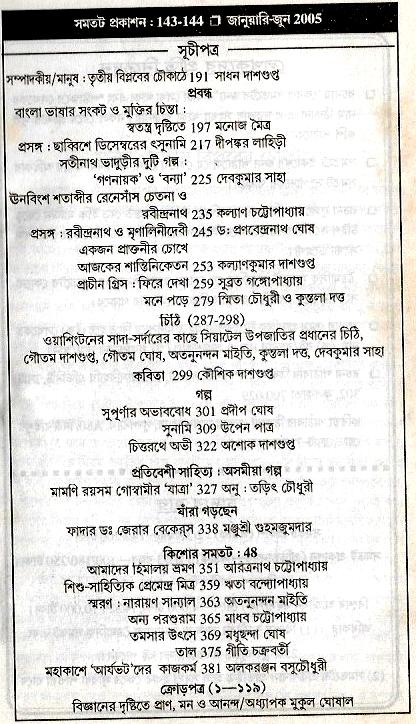 সমতট প্রকাশন : 143-144 ❐ জানুয়ারি-জুন 2005
সূচীপত্র
সম্পাদকীয়/মানুষ : তৃতীয় বিপ্লবের চৌকাঠে 191 সাধন দাশগুপ্ত
প্রবন্ধ
বাংলা ভাষার সংকট ও মুক্তির চিন্তা :
স্বতন্ত্র দৃষ্টিতে 197 মনোজ মৈত্র
প্রসঙ্গ : ছাব্বিশে ডিসেম্বরের ৎসুনামি 217 দীপঙ্কর লাহিড়ী
সতীনাথ ভাদুড়ীর দুটি গল্প :
‘গণনায়ক’ ও ‘বন্যা’ 225 দেবকুমার সাহা
ঊনবিংশ শতাব্দীর রেনেসাঁস চেতনা ও
রবীন্দ্রনাথ 235 কল্যাণ চট্টোপাধ্যায়
প্রসঙ্গ : রবীন্দ্রনাথ ও মৃণালিনীদেবী 245 ডঃ প্রণবেন্দ্রনাথ ঘোষ
একজন প্রাক্তনীর চোখে
আজকের শান্তিনিকেতন 253 কল্যাণকুমার দাশগুপ্ত
প্রাচীন গ্রিস : ফিরে দেখা 259 সুব্রত গঙ্গোপাধ্যায়
মনে পড়ে 279 স্মিতা চৌধুরী ও কুন্তলা দত্ত
চিঠি (287-298)
ওয়াশিংটনের সাদা-সর্দারের কাছে সিয়াটেল উপজাতির প্রধানের চিঠি,
গৌতম দাশগুপ্ত, গৌতম ঘোষ, অতনুনন্দন মাইতি, কুন্তলা দত্ত, দেবকুমার সাহা
কবিতা 299 কৌশিক দাশগুপ্ত
গল্প
সুপূর্ণার অভাববোধ 301 প্রদীপ ঘোষ
সুনামি 309 উপেন পাত্র
চিত্তরথে অভী 322 অশোক দাশগুপ্ত
প্রতিবেশী সাহিত্য : অসমীয়া গল্প
মামণি রয়সম গোস্বামীর ‘যাত্রা’ 327 অনু : তড়িৎ চৌধুরী
যাঁরা গড়ছেন
ফাদার ডঃ জেরার বেকের্‌স 338 মঞ্জুশ্রী গুহমজুমদার
কিশোর সমতট : 48
আমাদের হিমালয় ভ্রমণ 351 অরিত্রনাথ চট্টোপাধ্যায়
শিশু-সাহিত্যিক প্রেমেন্দ্র মিত্র 359 ঋতা বন্দ্যোপাধ্যায়
স্মরণ : নারায়ণ সান্যাল 363 অতনুনন্দন মাইতি
অন্য পরশুরাম 365 মাধব চট্টোপাধ্যায়
তমসার উৎসে 369 মধুছন্দা ঘোষ
তাল 375 গীতি চক্রবর্তী
মহাকাশে ‘আর্যভট’দের কাজকর্ম 381 অলকরঞ্জন বসুচৌধুরী
ক্রোড়পত্র (১—১১৯)
বিজ্ঞানের দৃষ্টিতে প্রাণ, মন ও আনন্দ/অধ্যাপক মুকুল ঘোষাল